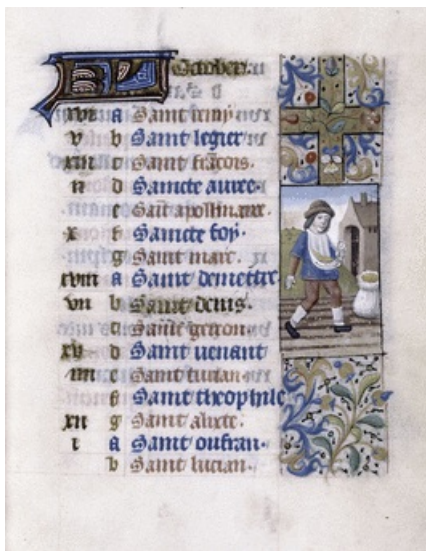 KL October.
xvi a Saint remy
v b Saint legier
xiii c Saint fracois.
ii d Saincte auree.
e Sait apollinaire.
x f Saincte foy.
g Saint marc.
xviii a Saint demettre.
vii b Saint denis.
c Saint gereon.
xv d Saint uenant
iiii e Saint lucian.
f Saint theophile
xii g Saint alixte.
i a Saint oufran.
b Saint lucian.